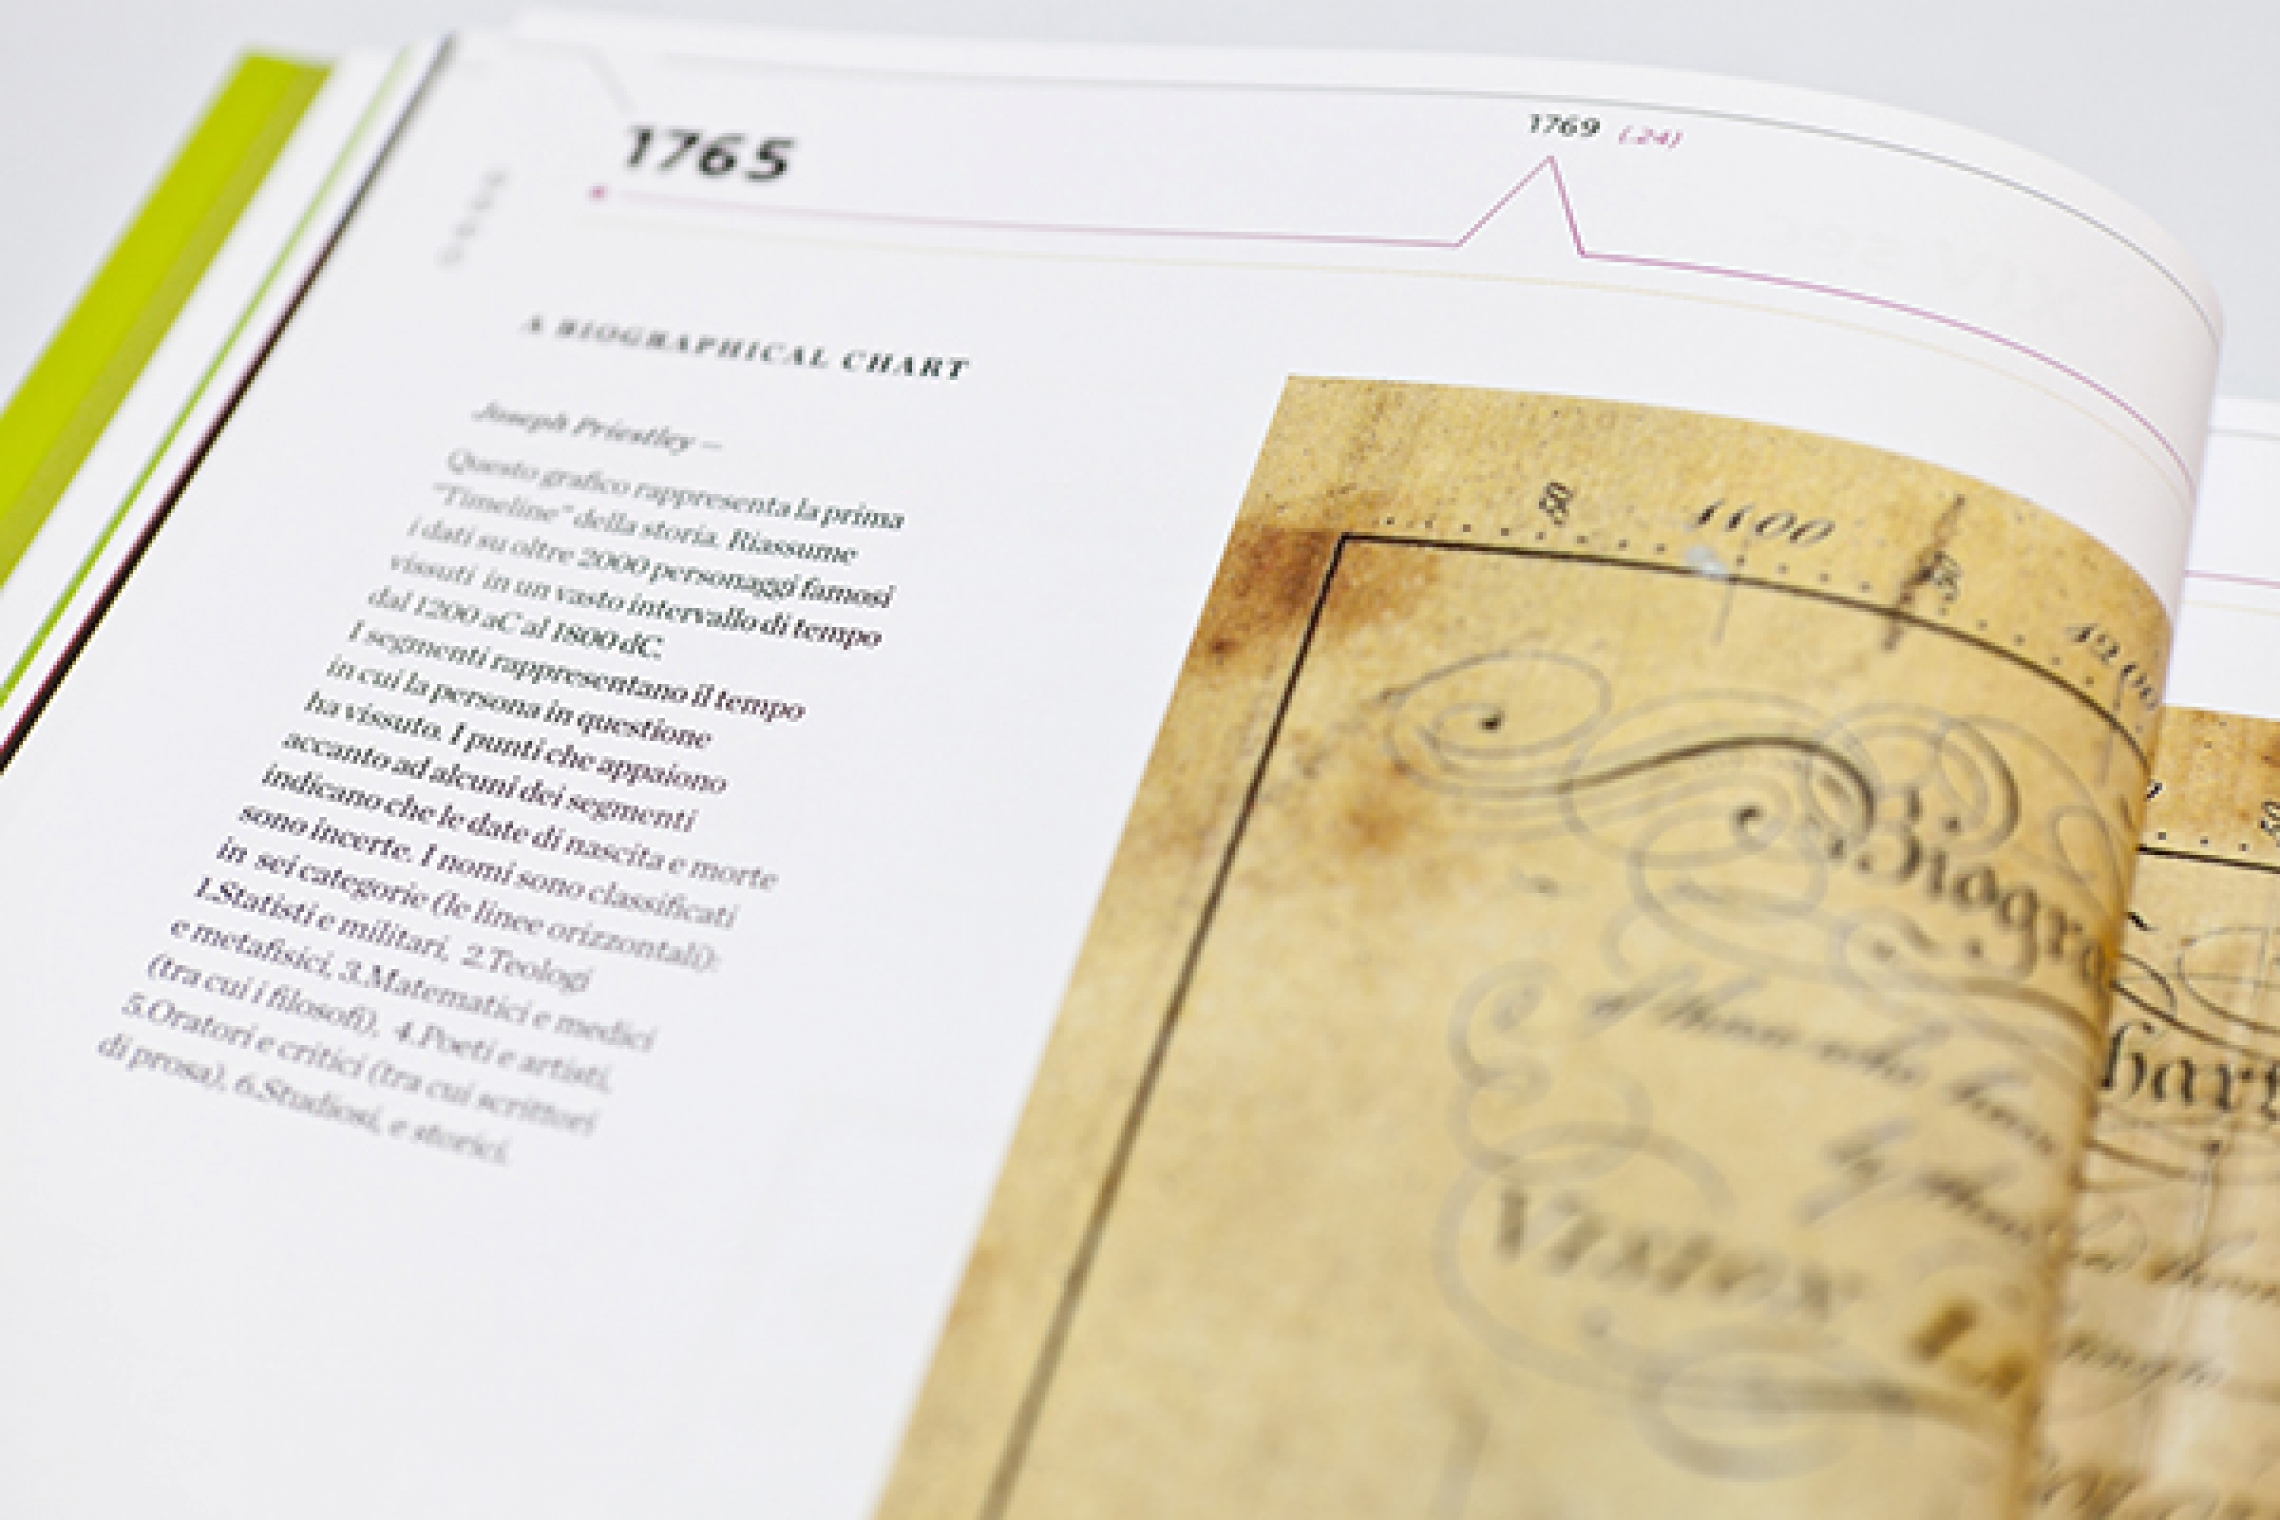 1765
1769 (.24)
A BIOGRAPHICAL CHART
Joseph Priestley —
Questo grafico rappresenta la prima
"Timeline" della storia. Riassume
i dati su oltre 2000 personaggi famosi
vissuti in un vasto intervallo di tempo
dal 1200 aC al 1800 dC.
I segmenti rappresentano il tempo
in cui la persona in questione
ha vissuto. I punti che appaiono
accanto ad alcuni dei segmenti
indicano che le date di nascita e morte
sono incerte. I nomi sono classificati
in sei categorie (le linee orizzontali):
1.Statisti e militari, 2.Teologi
e metafisici, 3.Matematici e medici
(tra cui i filosofi), 4.Poeti e artisti,
5.Oratori e critici (tra cui scrittori
di prosa), 6.Studiosi, e storici.
50 1100 1200
50
Biogra
hart